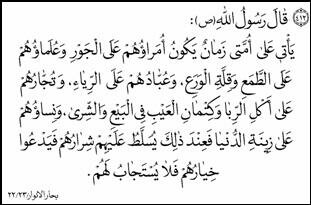 (٤١٢) قَالَ رَسُولُ اللهِ (ص):
يَأْتِي عَلىٰ أُمَّتى زَمَانٌ يَكُونُ أُمَرَاؤُهُمْ عَلَى الْجَوْرِ وَعُلَمَاؤُهُمْ
عَلَى الطَّمَعِ وَقِلَّةِ الْوَرَعِ، وَعُبَّادُهُمْ عَلَى الرِّيَاءِ، وَتُجَّارُهُمْ
عَلىٰ أَكْلِ الرِّبَا وَكِتْمَانِ الْعَيْبِ فِي الْبَيْعِ وَالشِّرىٰ، وَنِسَاؤُهُمْ
عَلىٰ زِينَةِ الدُّنْيَا فَعِنْدَ ذٰلِكَ يُسَلَّطُ عَلَيْهِمْ شِرَارُهُمْ فَيَدْعُوا
خِيَارُهُمْ فَلَا يُسْتَجَابُ لَهُمْ.
بحار الانوار: ٢٢/٢٣